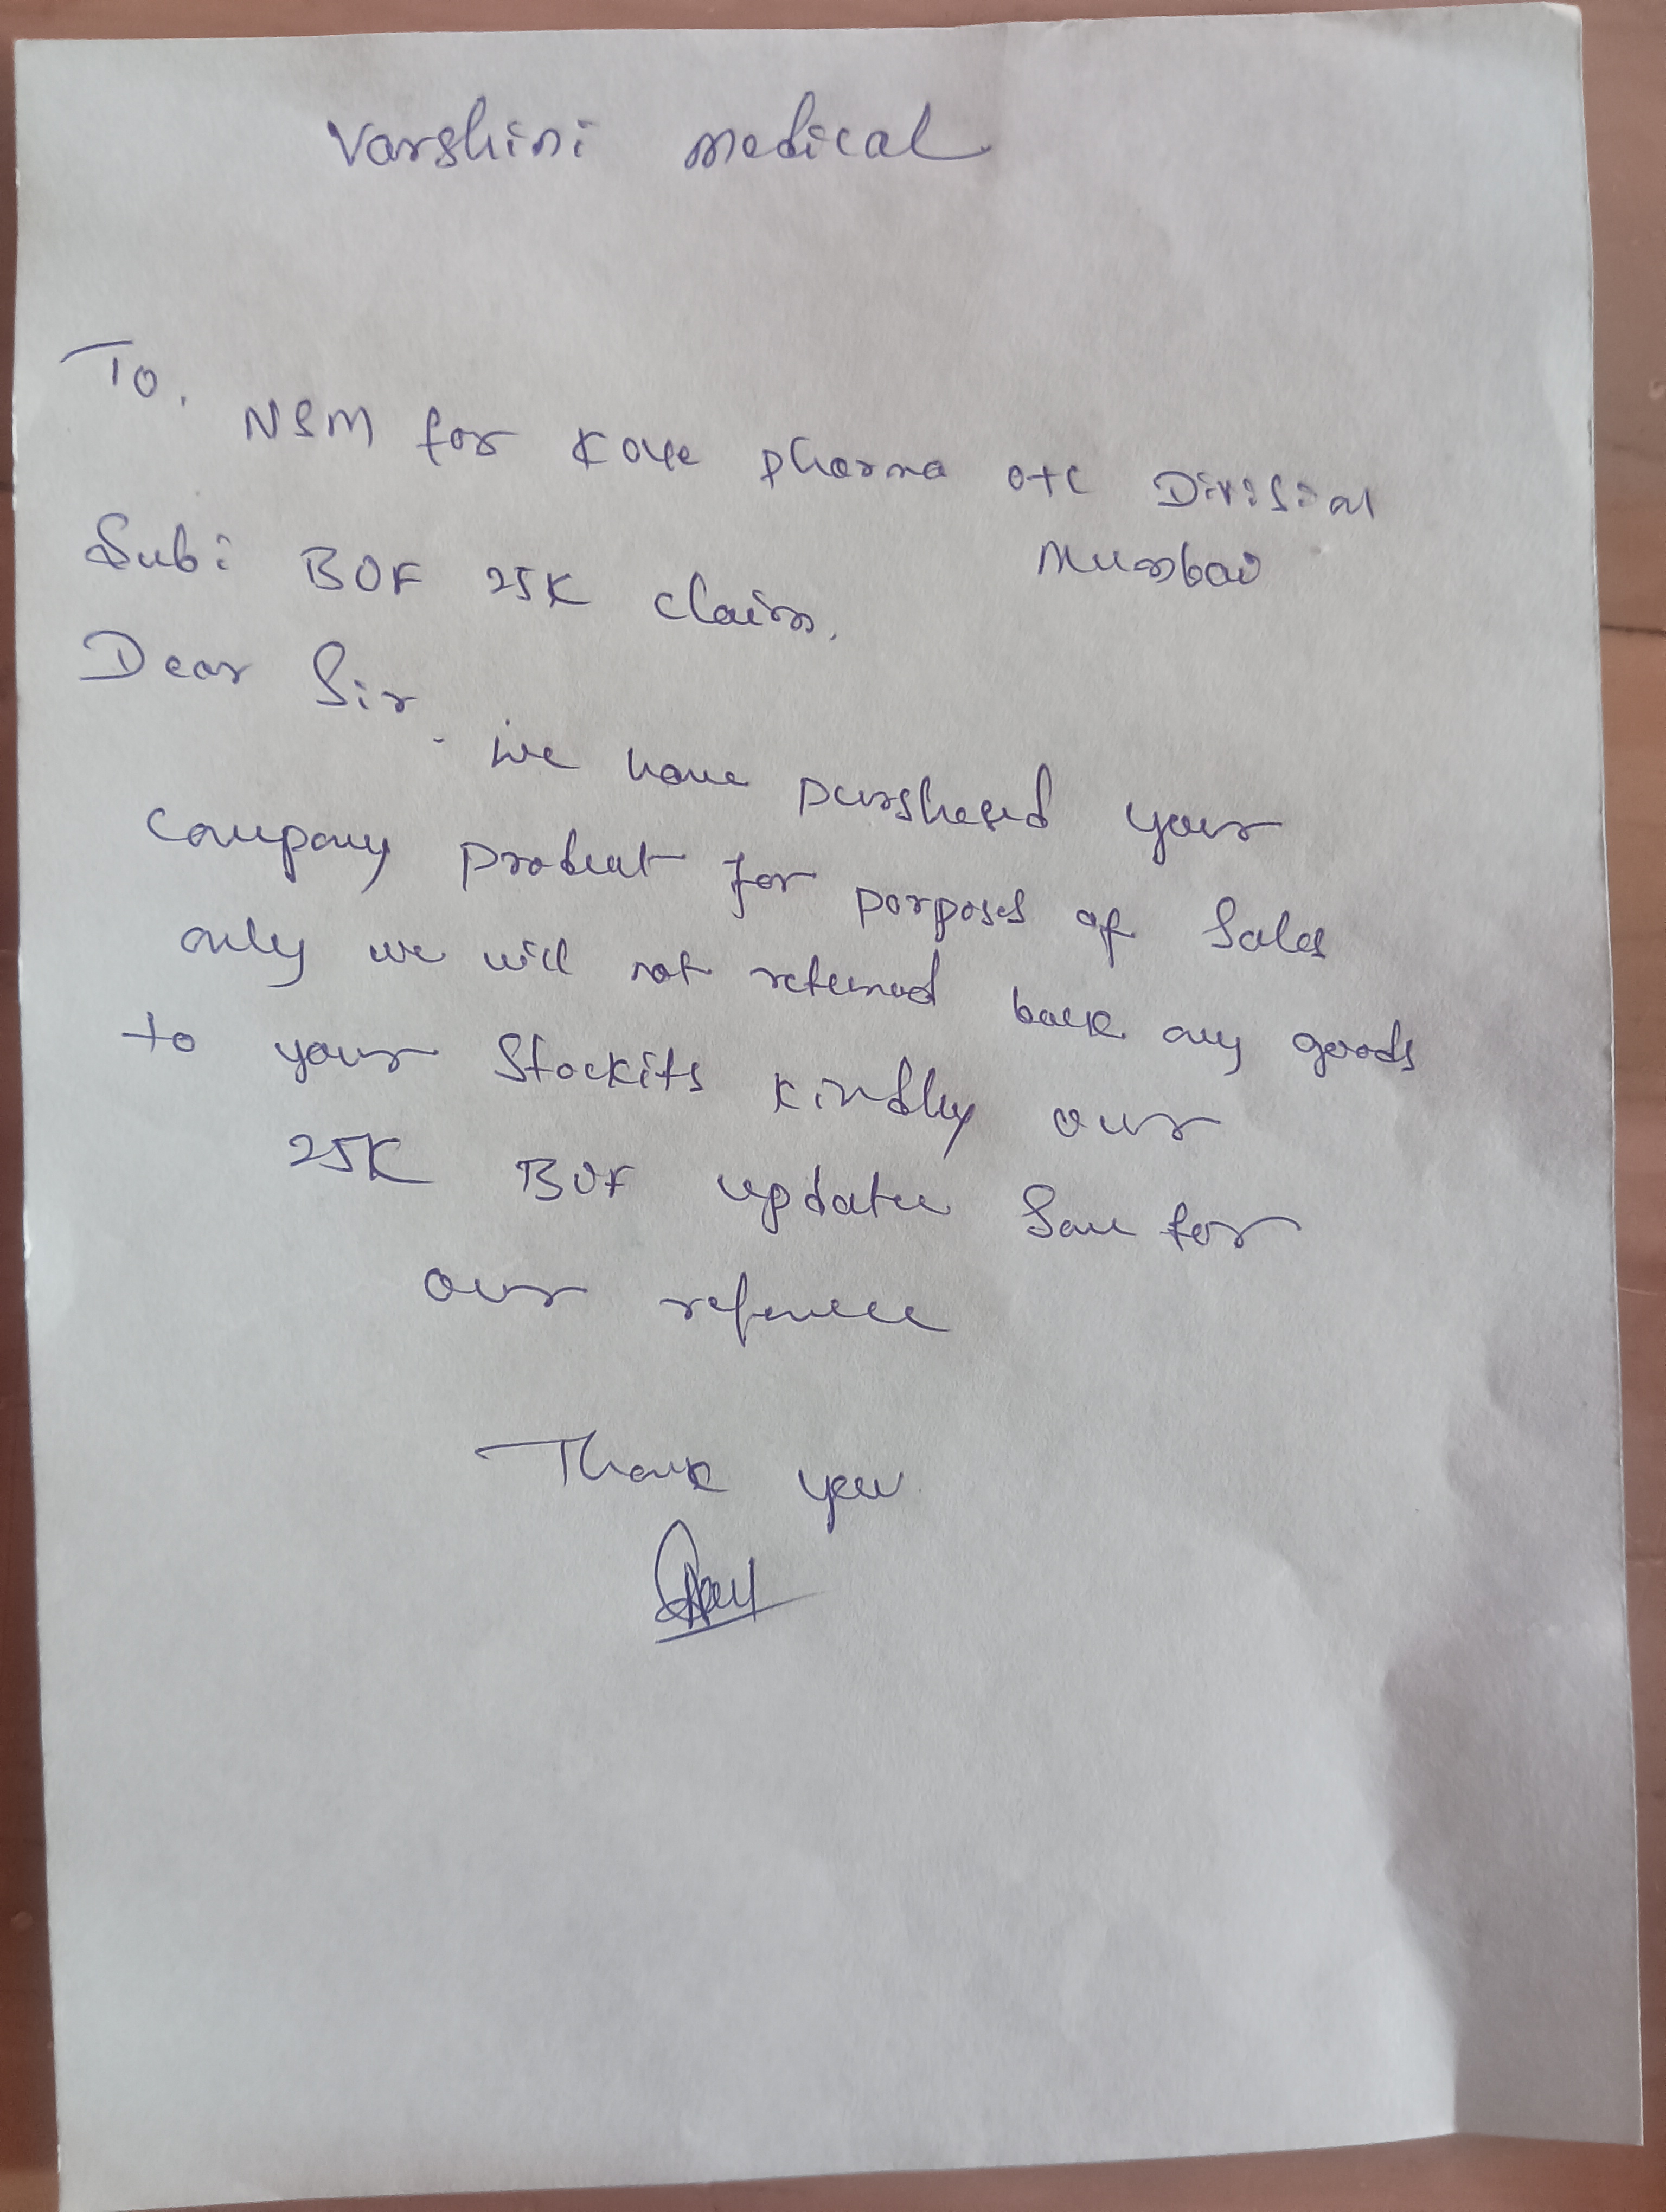 Varshini medical
To.
NSM for Koye pharma OTC Division
Mumbai
Sub: BOF 25K claim.
Dear Sir
we have purshased your
company product for porposes of Sales
only we will not returned back any goods
to your Stockits kindly our
25K BOF update Sau for
our reference
Thank you